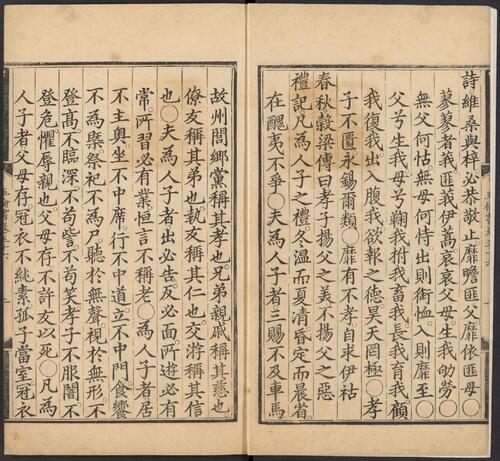 詩維桑與梓必恭敬止靡瞻匪父靡依匪母○
蓼蓼者莪匪莪伊蒿哀哀父母生我劬勞○
無父何怙無母何恃出則銜恤入則靡至○
父兮生我母兮鞠我拊我畜我長我育我顧
我復我出入腹我欲報之德昊天罔極○孝
子不匱永錫爾類○靡有不孝自求伊祜
春秋穀梁傳曰孝子揚父之美不揚父之惡
禮記凡為人子之禮冬溫而夏凊昏定而晨省
在醜夷不爭○夫為人子者三賜不及車馬
故州閭鄉黨稱其孝也兄弟親戚稱其慈也
僚友稱其弟也執友稱其仁也交游稱其信
也○夫為人子者出必告反必面所遊必有
常所習必有業恒言不稱老○為人子者居
不主奧坐不中席行不中道立不中門食饗
不為槩祭祀不為尸聽於無聲視於無形不
登高不臨深不苟訾不苟笑孝子不服闇不
登危懼辱親也父母存不許友以死○凡為
人子者父母存冠衣不純素孤子當室冠衣